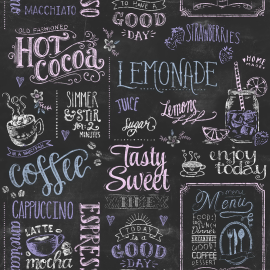 MACCHIATO
TO HAVE A
GOOD
DAY
STRAWBERRIES
OLD FASHIONED
HOT
Cocoa
LEMONADE
SIMMER
& STIR
for 2
MINUTES
JUICE
Lemons
Sugar
coffee
Tasty
Sweet
enjoy
today
CAPPUCCINO
americano
LATTE
mocha
ESPRESSO
TODAY
GOOD
DAY
Menu
FOOD
Lunch
Dinner
BREAKFAST
GOOD
COFFEE
DESSERT